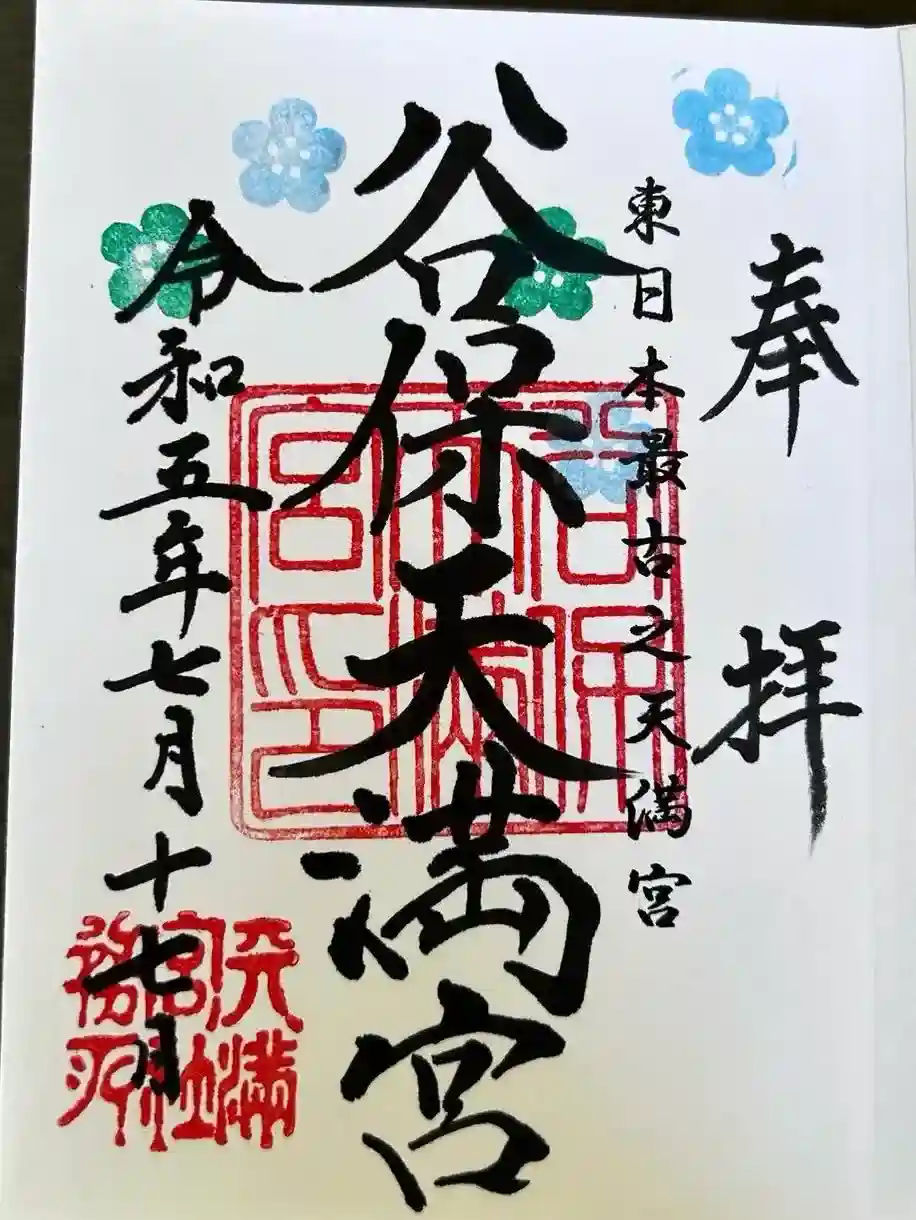 奉拝
東日本最古之天満宮
谷保天満宮
谷保天満宮印
令和五年七月十七月
天満宮社務所